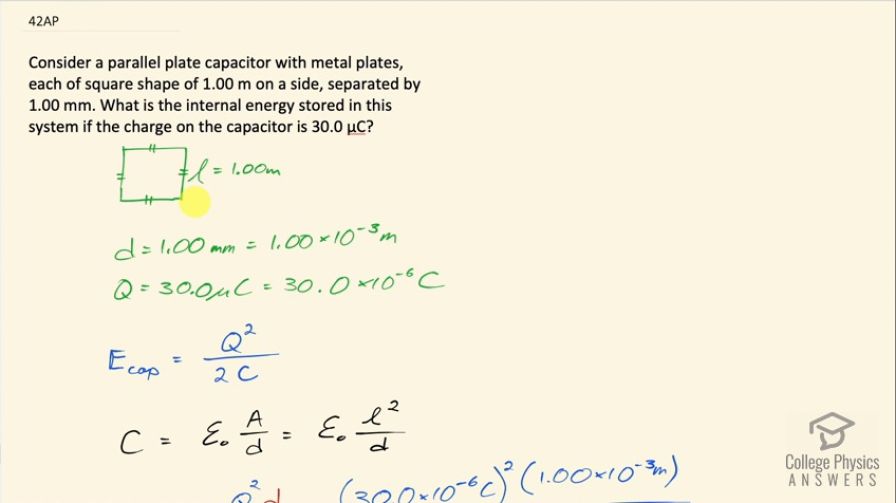 42AP
Consider a parallel plate capacitor with metal plates,
each of square shape of 1.00 m on a side, separated by
1.00 mm. What is the internal energy stored in this
system if the charge on the capacitor is 30.0 µC?
l = 1.00m
d = 1.00 mm = 1.00 × 10⁻³ m
Q = 30.0µC = 30.0 × 10⁻⁶ C
E_cap = Q² / 2C
C = ε₀ A/d = ε₀ l²/d
Q² d (30.0×10⁻⁶C)² (1.00×10⁻³m)
College Physics
ANSWERS